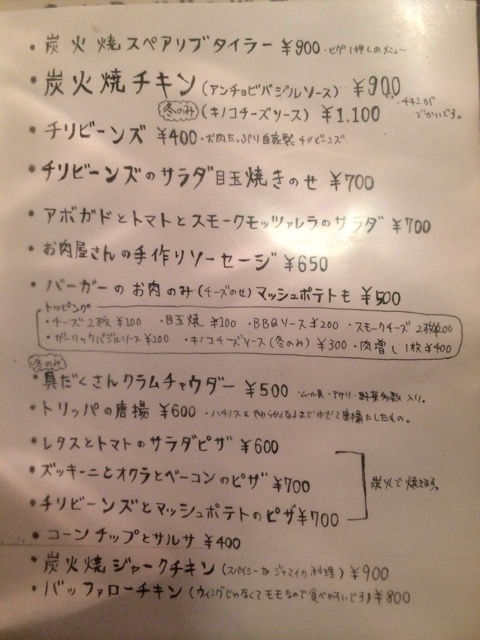 ・炭火焼スペアリブタイラー ¥900 ・ヒゲ1押しのメニュー
・炭火焼チキン(アンチョビバジルソース) ¥900 ・チキンがでかいです。
冬のみ (キノコチーズソース) ¥1.100
・チリビーンズ ¥400 ・お肉たっぷり自家製チリビーンズ
・チリビーンズのサラダ目玉焼きのせ ¥700
・アボガドとトマトとスモークモッツァレラのサラダ ¥700
・お肉屋さんの手作りソーセージ ¥650
・バーガーのお肉のみ(チーズのせ)マッシュポテトも ¥500
トッピング
・チーズ2枚 ¥100 ・目玉焼 ¥100 ・BBQソース ¥200 ・スモークチーズ2枚
・ガーリックバジルソース ¥200 ・キノコチーズソース(冬のみ) ¥300 ・肉増し1枚 ¥400
冬のみ
・具だくさんクラムチャウダー ¥500 ムール貝・アサリ・野菜多数入り。
・トリッパの唐揚 ¥600 ・ハチノスをやわらかくなるまでゆでて唐揚にしたもの。
・レタスとトマトのサラダピザ ¥600
・ズッキーニとオクラとベーコンのピザ ¥700
炭火で焼きます。
・チリビーンズとマッシュポテトのピザ ¥700
・コーンチップとサルサ ¥400
・炭火焼ジャークチキン(スパイシーなジャマイカ料理) ¥900
・バッファローチキン(ウイングじゃなくてモモなので食べやすいです) ¥800